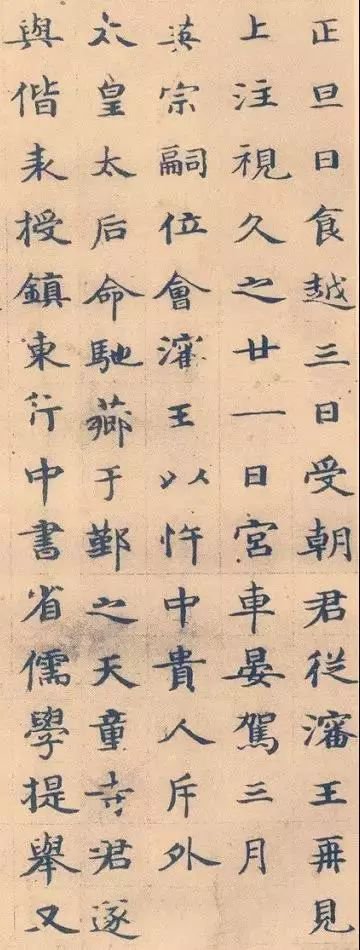 正旦日食越三日受朝君從瀋王再見
上注視久之廿一日宮車晏駕三月
英宗嗣位會瀋王以忤中貴人斥外
太皇太后命馳薌于鄞之天童寺君遂
與偕来授鎮東行中書省儒學提舉又